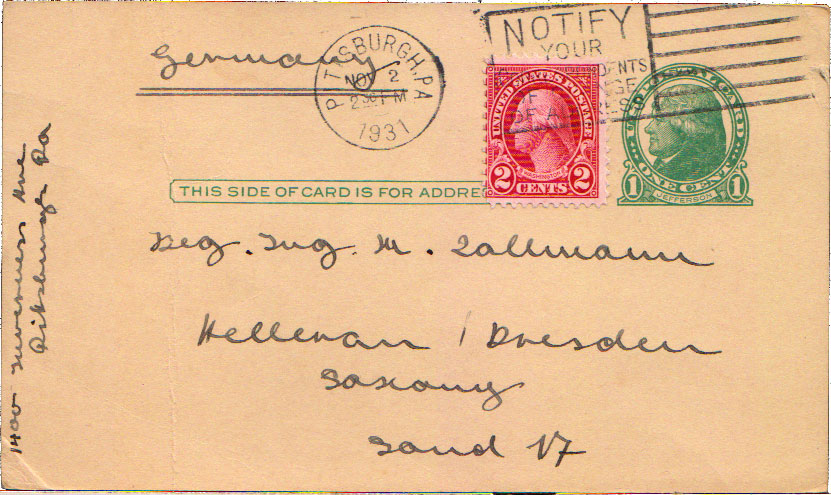 Germany
PITTSBURGH, PA
NOV 2
2 30 PM
1931
NOTIFY
YOUR
OF
UNITED STATES POSTAGE
WASHINGTON
2 CENTS 2
1 ONE CENT 1
JEFFERSON
THIS SIDE OF CARD IS FOR ADDRE
Reg. Ing. M. Zallmann
Hellerau / Dresden
Saxony
Sand 17
1400 Inverness Ave
Pittsburgh Pa